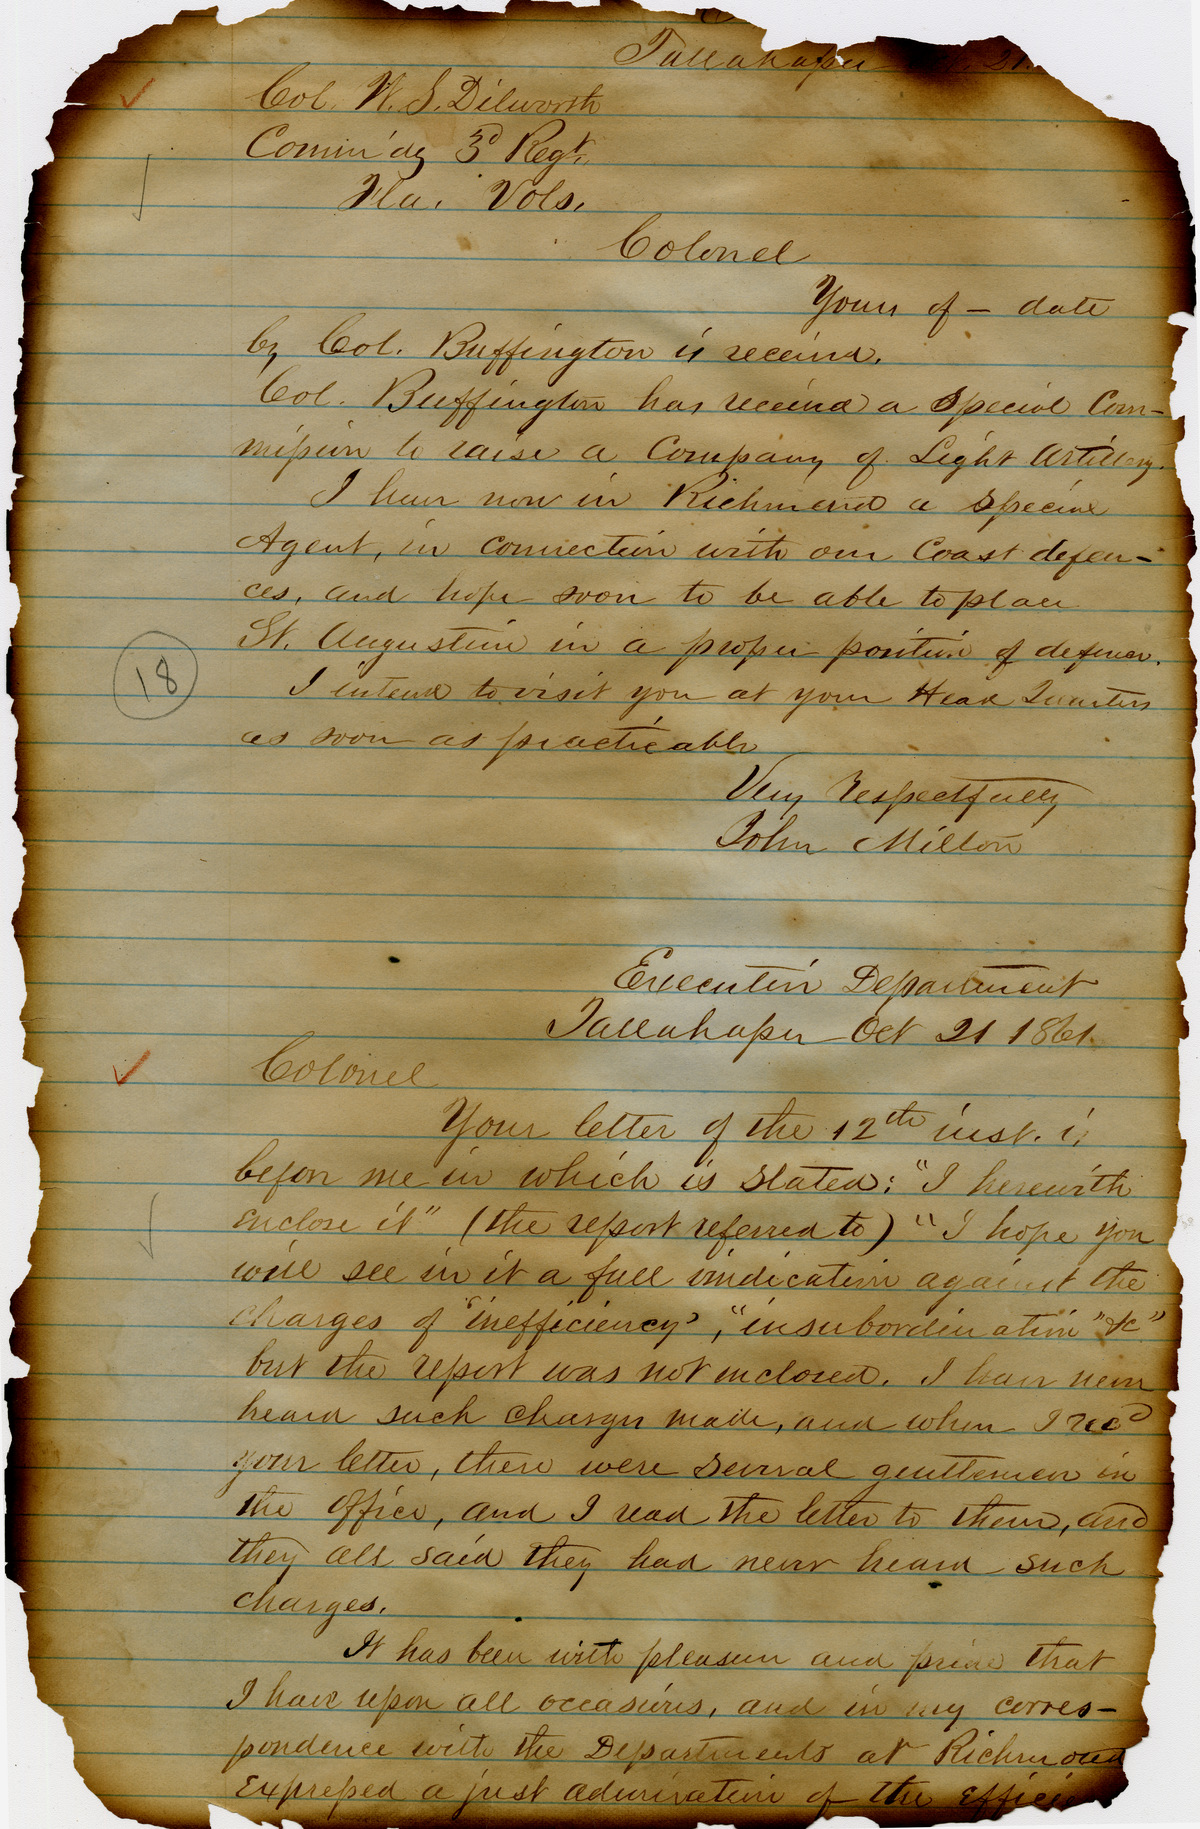 Tallahassee 21
Col. W. S. Dilworth
Comm'dg 3d Regt.
Fla. Vols.
Colonel
Yours of — date
by Col. Buffington is received.
Col. Buffington has received a special Com-
mission to raise a Company of Light Artillery.
I have now in Richmond a special
Agent, in connection with our Coast defen-
ces, and hope soon to be able to place
St. Augustine in a proper position of defence.
18
I intend to visit you at your Head Quarters
as soon as practicable
Very Respectfully
John Milton
Executive Department
Tallahassee Oct 21 1861.
Colonel
Your letter of the 12th inst. is
before me in which is stated: "I herewith
enclose it" (the report referred to) "I hope you
will see in it a full vindication against the
charges of 'inefficiency', "insubordination" &c"
but the report was not inclosed. I have never
heard such charges made, and when I recd
your letter, there were several gentlemen in
the office, and I read the letter to them, and
they all said they had never heard such
charges.
It has been with pleasure and pride that
I have upon all occasions, and in my corres-
pondence with the Departments at Richmond
expressed a just admiration of the